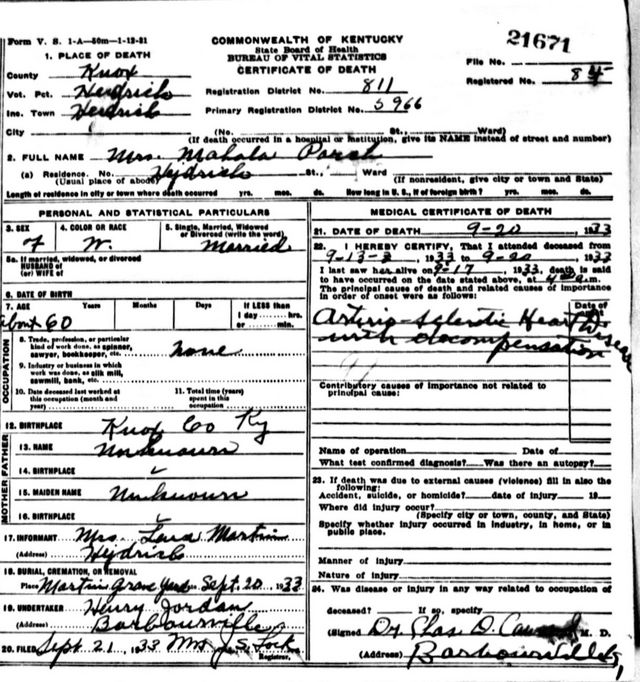 Form V. S. 1-A—50m—1-12-31
COMMONWEALTH OF KENTUCKY
State Board of Health
BUREAU OF VITAL STATISTICS
CERTIFICATE OF DEATH
21671
File No.
Registered No. 84
1. PLACE OF DEATH
County Knox
Vot. Pct. Heidrich
Inc. Town Heidrich
Registration District No. 811
Primary Registration District No. 5966
City (No. St., Ward)
(If death occurred in a hospital or institution, give its NAME instead of street and number)
2. FULL NAME Mrs. Mahala
(a) Residence. No. Hydrich St., Ward (If nonresident, give city or town and State)
(Usual place of abode)
Length of residence in city or town where death occurred yrs. mos. ds. How long in U. S., if of foreign birth? yrs. mos. ds.
PERSONAL AND STATISTICAL PARTICULARS
3. SEX
f
4. COLOR OR RACE
W.
5. Single, Married, Widowed
or Divorced (write the word)
Married
5a. If married, widowed, or divorced
HUSBAND of
(or) WIFE of
6. DATE OF BIRTH
7. AGE Years Months Days If LESS than
1 day, hrs.
or min.
about 60
OCCUPATION
8. Trade, profession, or particular
kind of work done, as spinner,
sawyer, bookkeeper, etc. none
9. Industry or business in which
work was done, as silk mill,
sawmill, bank, etc.
10. Date deceased last worked at
this occupation (month and
year)
11. Total time (years)
spent in this
occupation
12. BIRTHPLACE Knox Co Ky
FATHER
13. NAME Unknown
14. BIRTHPLACE
MOTHER
15. MAIDEN NAME Unknown
16. BIRTHPLACE
17. INFORMANT Mrs. Martin
(Address) Hydrich
18. BURIAL, CREMATION, OR REMOVAL
Place Martin Grave Yard Sept. 20 1933
19. UNDERTAKER Henry Jordan
(Address) Barbourville
20. FILED Sept 21, 1933 Mrs J. S. Lock
Registrar.
MEDICAL CERTIFICATE OF DEATH
21. DATE OF DEATH 9-20, 1933
22. I HEREBY CERTIFY, That I attended deceased from
9-13-3, 1933 to 9-20, 1933
I last saw her alive on 9-17, 1933, death is said
to have occurred on the date stated above, at 4 a.m.
The principal cause of death and related causes of importance
in order of onset were as follows:
Date of
Arterio-Sclerotic Heart Disease
with decompensation
Contributory causes of importance not related to
principal cause:
Name of operation Date of
What test confirmed diagnosis? Was there an autopsy?
23. If death was due to external causes (violence) fill in also the
following:
Accident, suicide, or homicide? date of injury 19
Where did injury occur?
(Specify city or town, county, and State)
Specify whether injury occurred in industry, in home, or in
public place.
Manner of injury
Nature of injury
24. Was disease or injury in any way related to occupation of
deceased? If so, specify
(Signed Dr. Chas. D. M. D.
(Address) Barbourville, Ky